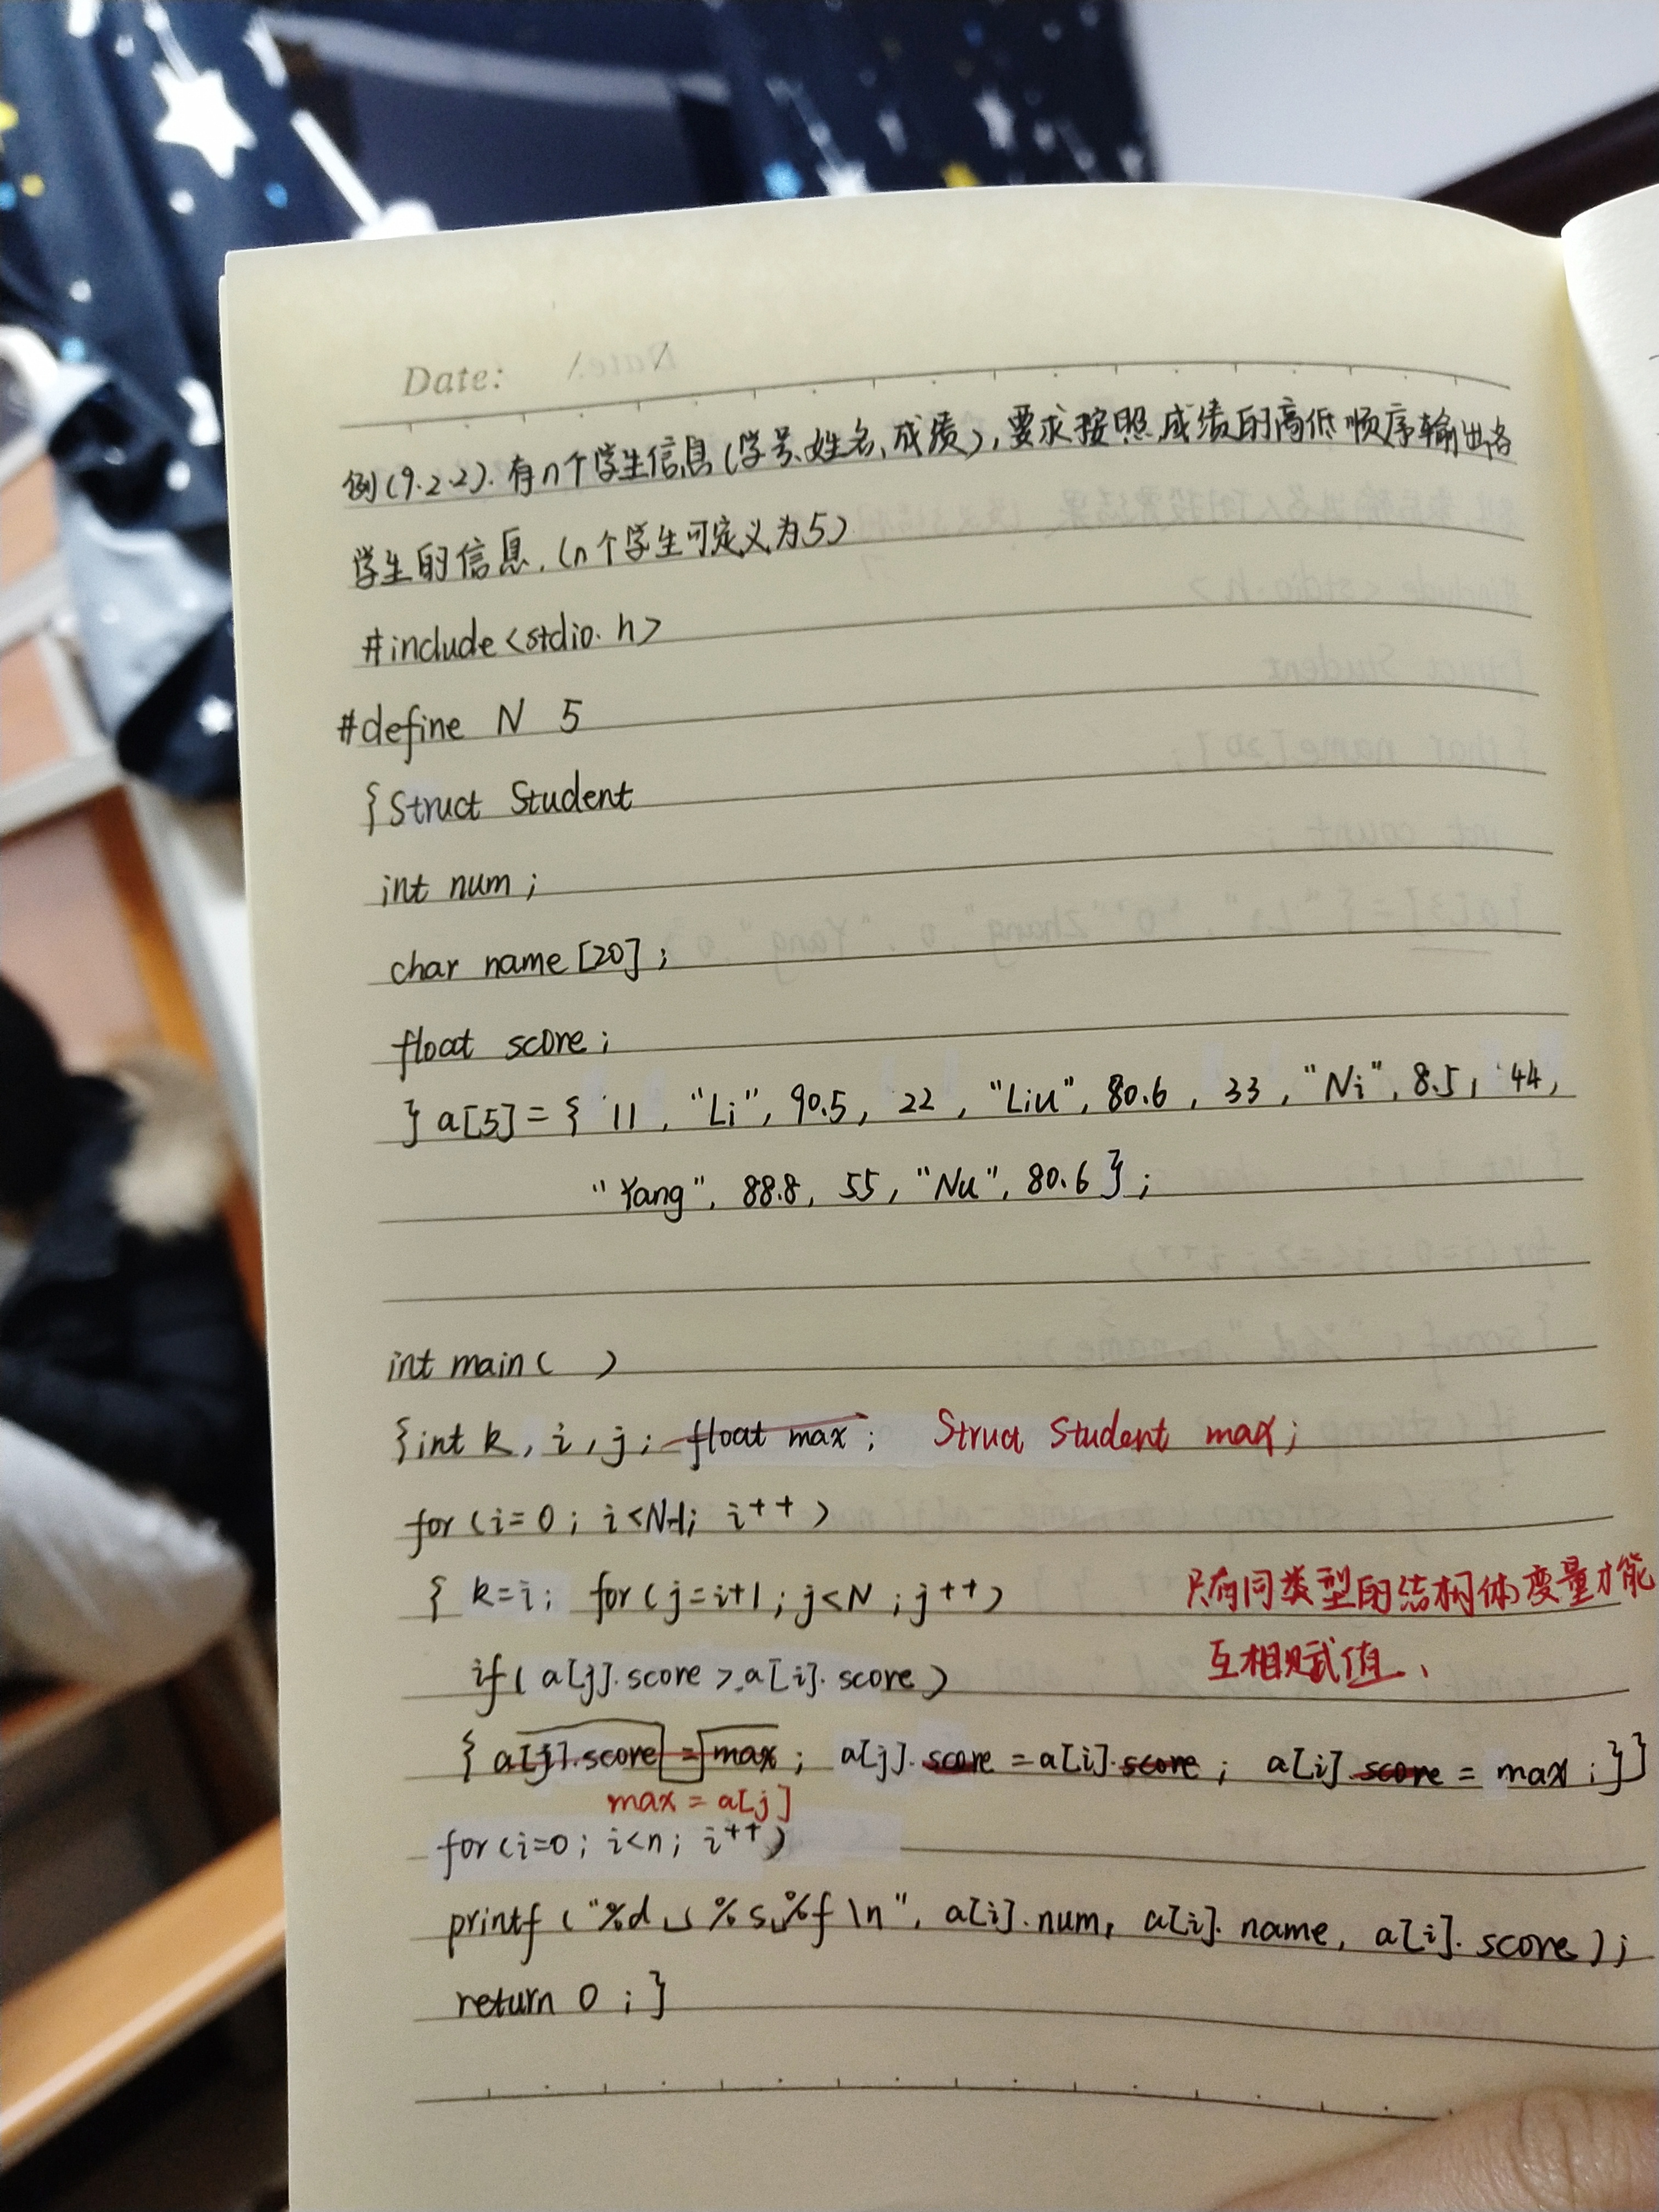 Date:
例(9.2.2).有n个学生信息(学号、姓名、成质),要求按照成绩的高低顺序输出各
学生的信息.(n个学生可定义为5)
#include<stdio.h>
#define N 5
{Struct Student
int num;
char name[20];
float score;
}a[5]={11,"Li",90.5,22,"Liu",80.6,33,"Ni",8.5,44,
"Yang",88.8,55,"Nu",80.6};
int main( )
{int k,i,j; float max; Struct Student max;
for(i=0;i<N-1;i++)
{ k=i; for(j=i+1;j<N;j++) 只有同类型的结构体变量才能
互相赋值、
if(a[j].score>a[i].score)
{a[j].score=max; a[j].score=a[i].score; a[i].score=max;}}
max=a[j]
for(i=0;i<n;i++)
printf("%d␣%s␣%f\n",a[i].num,a[i].name,a[i].score);
return 0;}